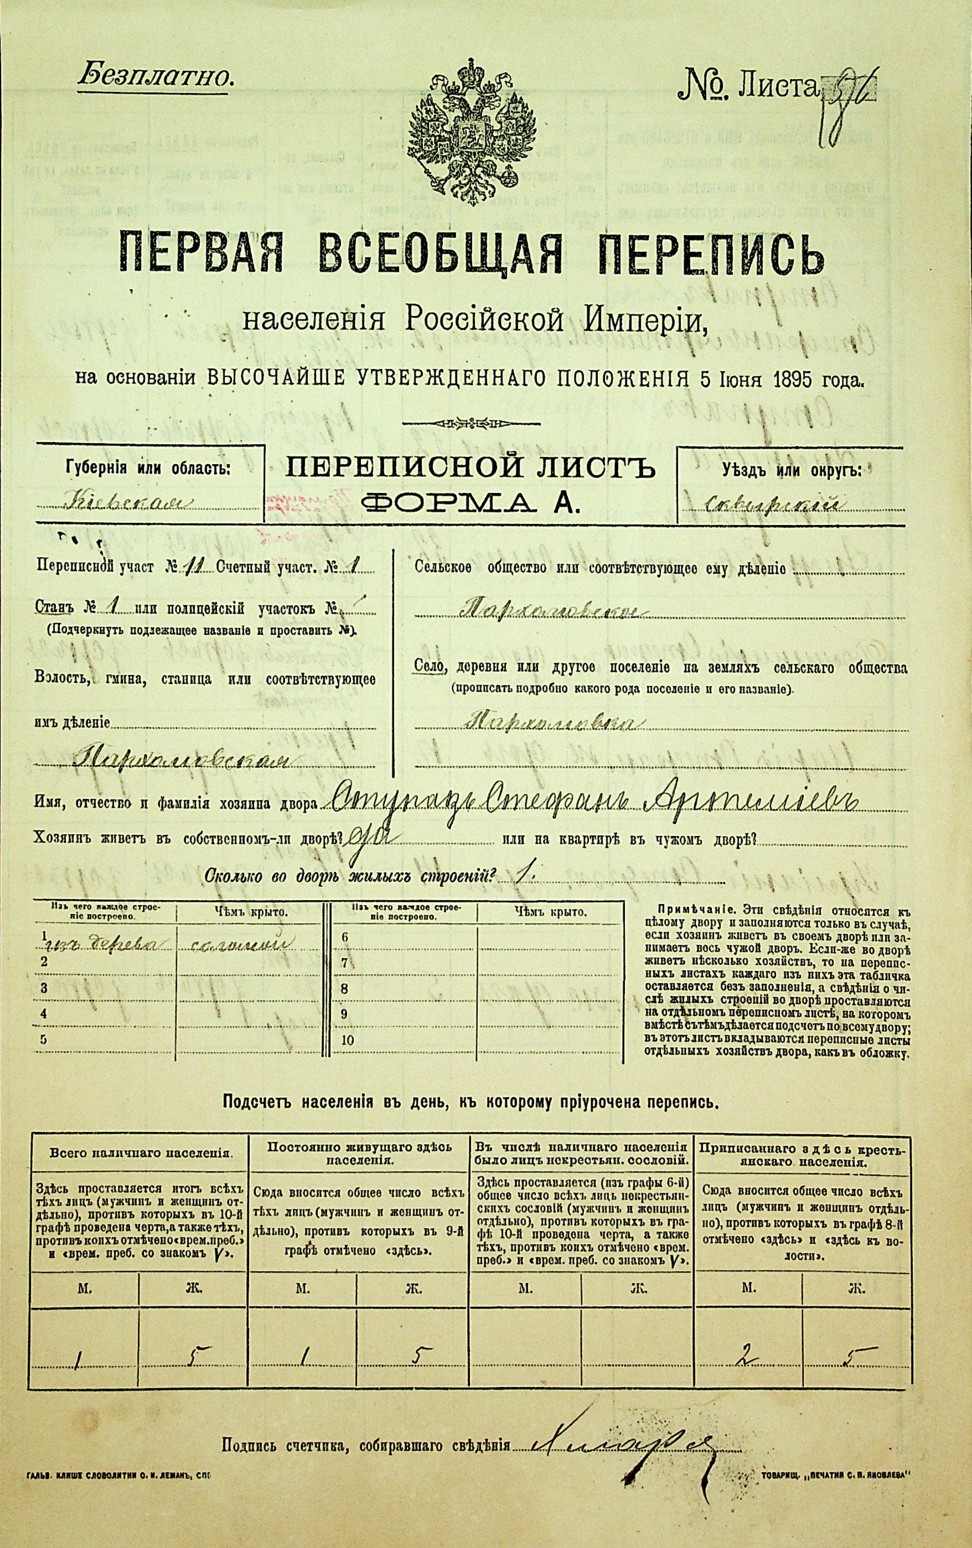 Безплатно.
№. Листа 96
ПЕРВАЯ ВСЕОБЩАЯ ПЕРЕПИСЬ
населенія Россійской Имперіи,
на основаніи ВЫСОЧАЙШЕ УТВЕРЖДЕННАГО ПОЛОЖЕНІЯ 5 Іюня 1895 года.
Губернія или область:
Кіевская
ПЕРЕПИСНОЙ ЛИСТЪ
ФОРМА А.
Уѣздъ или округъ:
Сквирскій
Переписной участ № 11 Счетный участ. № 1
Станъ № 1 или полицейскій участокъ №
(Подчеркнуть подлежащее названіе и проставить №).
Волость, гмина, станица или соотвѣтствующее
имъ дѣленіе
Пархомовская
Сельское общество или соотвѣтствующее ему дѣленіе
Пархомовское
Село, деревня или другое поселеніе на земляхъ сельскаго общества
(прописать подробно какого рода поселеніе и его названіе).
Пархомовка
Имя, отчество и фамилія хозяина двора Ступакъ Стефанъ Артеміевъ
Хозяинъ живетъ въ собственномъ-ли дворѣ? да или на квартирѣ въ чужомъ дворѣ?
Сколько во дворѣ жилыхъ строеній? 1.
Изъ чего каждое строе-
ніе построено.
Чѣмъ крыто.
1 изъ дерева соломой
2
3
4
5
Изъ чего каждое стрoe-
ніе построено.
Чѣмъ крыто.
6
7
8
9
10
Примѣчаніе. Эти свѣдѣнія относятся къ
цѣлому двору и заполняются только въ случаѣ,
если хозяинъ живетъ въ своемъ дворѣ или за-
нимаетъ весь чужой дворъ. Если-же во дворѣ
живетъ нѣсколько хозяйствъ, то на перепис-
ныхъ листахъ каждаго изъ нихъ эта табличка
оставляется безъ заполненія, а свѣдѣнія о чи-
слѣ жилыхъ строеній во дворѣ проставляются
на отдѣльномъ переписномъ листѣ, на которомъ
вмѣстѣ съ тѣмъ дѣлается подсчетъ по всему двору;
въ этотъ листъ вкладываются переписные листы
отдѣльныхъ хозяйствъ двора, какъ въ обложку.
Подсчетъ населенія въ день, къ которому пріурочена перепись.
Всего наличнаго населенія.
Здѣсь проставляется итогъ всѣхъ
тѣхъ лицъ (мужчинъ и женщинъ от-
дѣльно), противъ которыхъ въ 10-й
графѣ проведена черта, а также тѣхъ,
противъ коихъ отмѣчено «врем. преб.»
и «врем. преб. со знакомъ V».
М. Ж.
1 5
Постоянно живущаго здѣсь
населенія.
Сюда вносится общее число всѣхъ
тѣхъ лицъ (мужчинъ и женщинъ от-
дѣльно), противъ которыхъ въ 9-й
графѣ отмѣчено «здѣсь».
М. Ж.
1 5
Въ числѣ наличнаго населенія
было лицъ некрестьян. сословій.
Здѣсь проставляется (изъ графы 6-й)
общее число всѣхъ лицъ некрестьян-
скихъ сословій (мужчинъ и женщинъ
отдѣльно), противъ которыхъ въ гра-
фѣ 10-й проведена черта, а также
тѣхъ, противъ коихъ отмѣчено «врем.
преб.» и «врем. преб. со знакомъ V».
М. Ж.
Приписаннаго здѣсь кресть-
янскаго населенія.
Сюда вносится общее число всѣхъ
лицъ (мужчинъ и женщинъ отдѣль-
но), противъ которыхъ въ графѣ 8-й
отмѣчено «здѣсь» и «здѣсь къ во-
лости».
М. Ж.
2 5
Подпись счетчика, собиравшаго свѣдѣнія
ГАЛЬВ. КЛИШЕ СЛОВОЛИТНИ О. И. ЛЕМАНЪ, СПБ
ТОВАРИЩ. „ПЕЧАТНЯ С. П. ЯКОВЛЕВА"